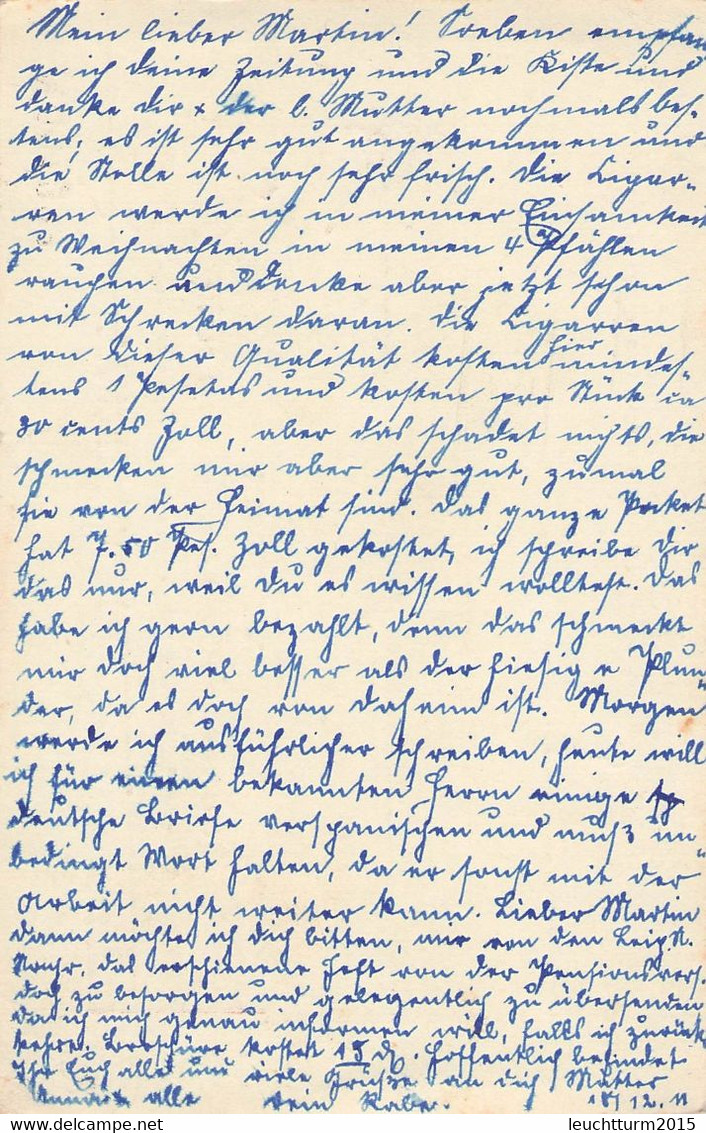 Mein lieber Martin! Soeben empfan
ge ich deine Zeitung und die Kiste und
danke dir + der l. Mutter nochmals bes-
tens, es ist sehr gut angekommen und
die Stolle ist noch sehr frisch. Die Cigar-
ren werde ich in meiner Einsamkeit
zu Weihnachten in meinen 4 Pfählen
rauchen und denke aber jetzt schon
mit Schrecken daran. Die Cigarren
von dieser Qualität kosten hier mindes-
tens 1 Pesetas und kosten pro Stück ca
30 cents Zoll, aber das schadet nichts, die
schmecken mir aber sehr gut, zumal
sie von der Heimat sind. Das ganze Packet
hat 7.50 Pes. Zoll gekostet, ich schreibe dir
das nur, weil du es wissen wolltest. Das
habe ich gern bezahlt, denn das schmeckt
mir doch viel besser als der hiesige Plun-
der, da es doch von daheim ist. Morgen
werde ich ausführlicher schreiben, heute will
ich für einen bekannten Herrn einige
deutsche Briefe verspanischen und muß un-
bedingt Wort halten, da er sonst mit der
Arbeit nicht weiter kann. Lieber Martin
dann möchte ich dich bitten, mir von den Leipz. N.
Nachr. das erschienene Heft von der Pensionsvers.
doch zu besorgen und gelegentlich zu übersenden
da ich mich genau informen will, falls ich zurück
kehre. Broschüre kostet 15 d. Hoffentlich befindet
Ihr Euch alle und viele Grüße an dich Mutter
alle dein
18/12. 11
leuchtturm2015